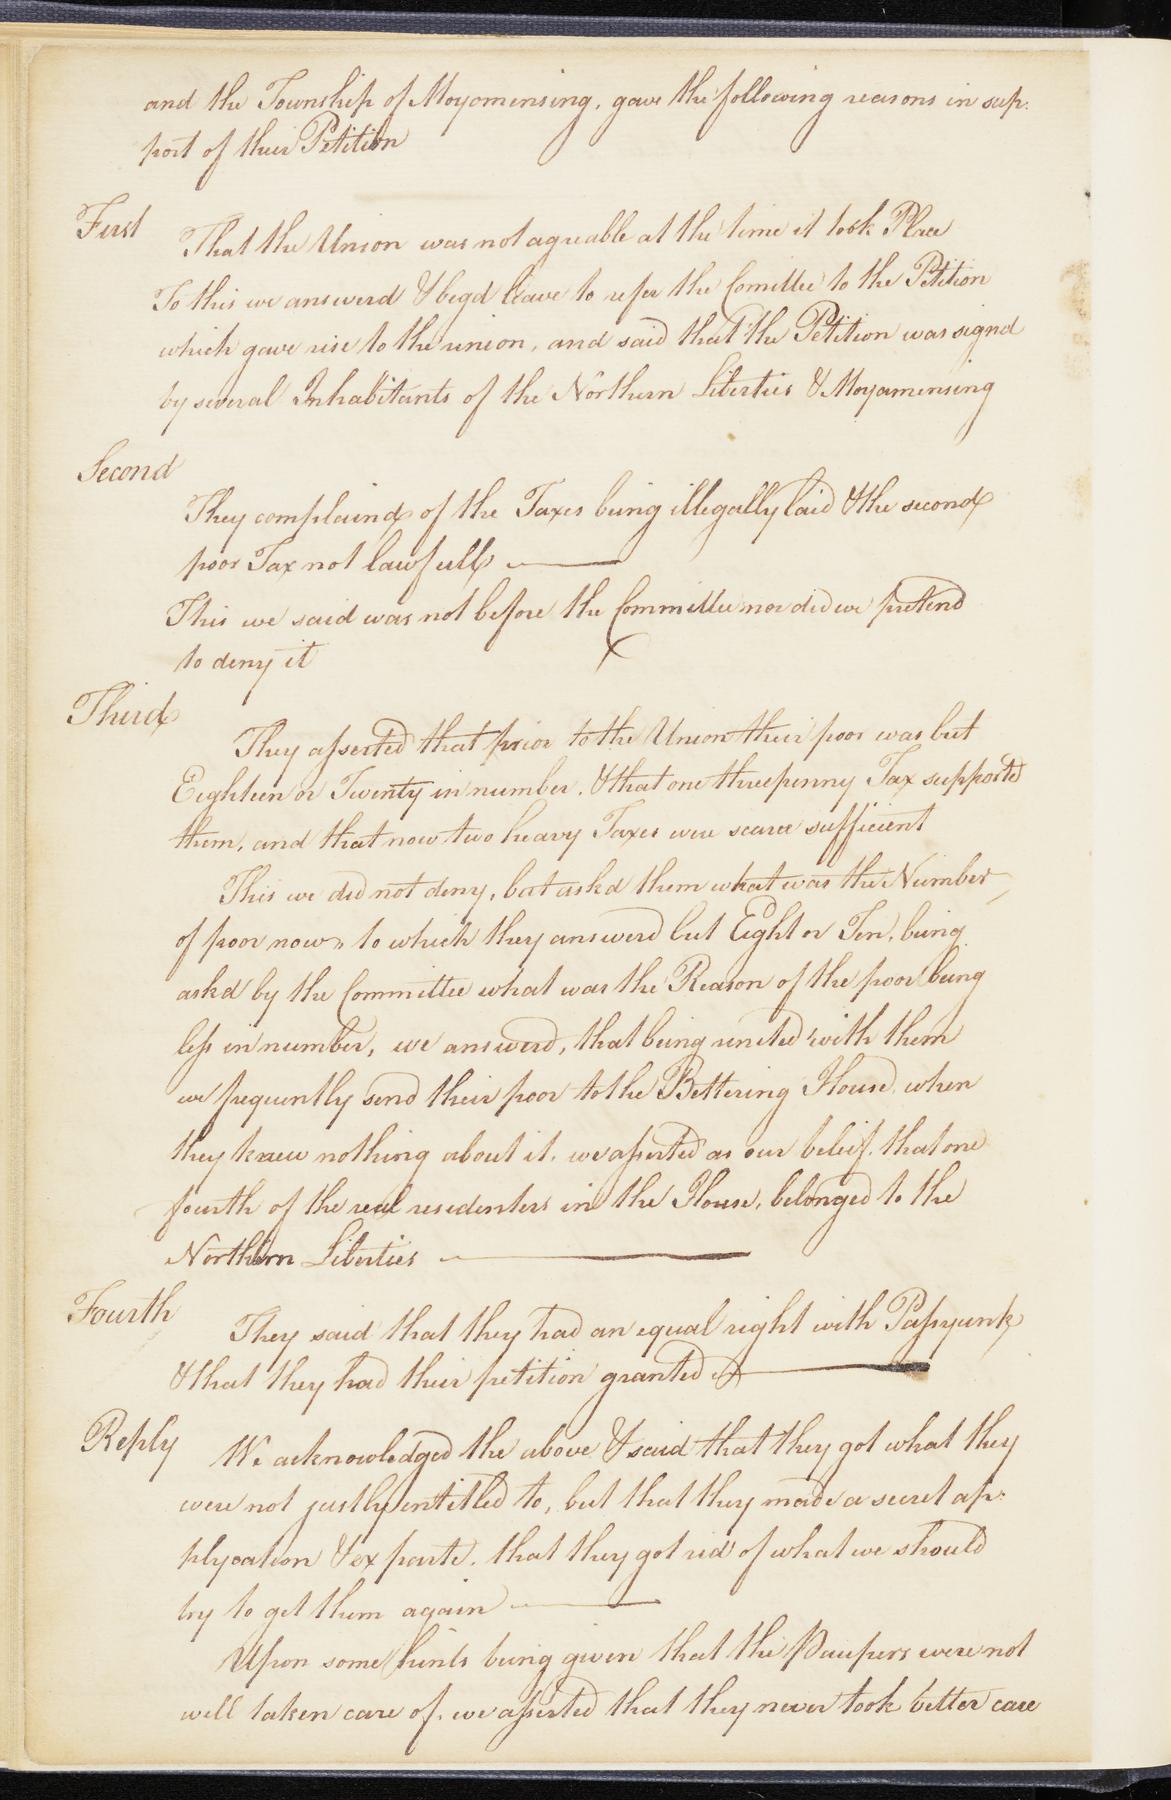 and the Township of Moyomensing, gave the following reasons in sup:
port of their Petition
First
That the Union was not agreable at the time it took Place
To this we answerd & begd leave to refer the Comittee to the Petition
which gave rise to the union, and said that the Petition was signd
by several Inhabitants of the Northern Liberties & Moyamensing
Second
They complaind of the Taxes being illegally laid & the second
poor Tax not lawfull
This we said was not before the Committee nor did we pretend
to deny it
Third
They asserted that prior to the Union their poor was but
Eighteen or Twenty in number, & that one threepenny Tax supported
them, and that now two heavy Taxes were scarce sufficient
This we did not deny, but askd them what was the Number
of poor now, to which they answerd but Eight or Ten, being
askd by the Committee what was the Reason of the poor being
less in number, we answerd, that being united with them
we frequently send their poor to the Bettering House when
they knew nothing about it, we asserted as our beleif, that one
fourth of the real residenters in the House, belonged to the
Northern Liberties
Fourth
They said that they had an equal right with Passyunk
& that they had their petition granted
Reply
We acknowledged the above & said that they got what they
were not justly entitled to, but that they made a secret ap:
plycation & ex parte, that they got rid of what we should
try to get them again
Upon some hints being given that the Paupers were not
well taken care of, we asserted that they never took better care